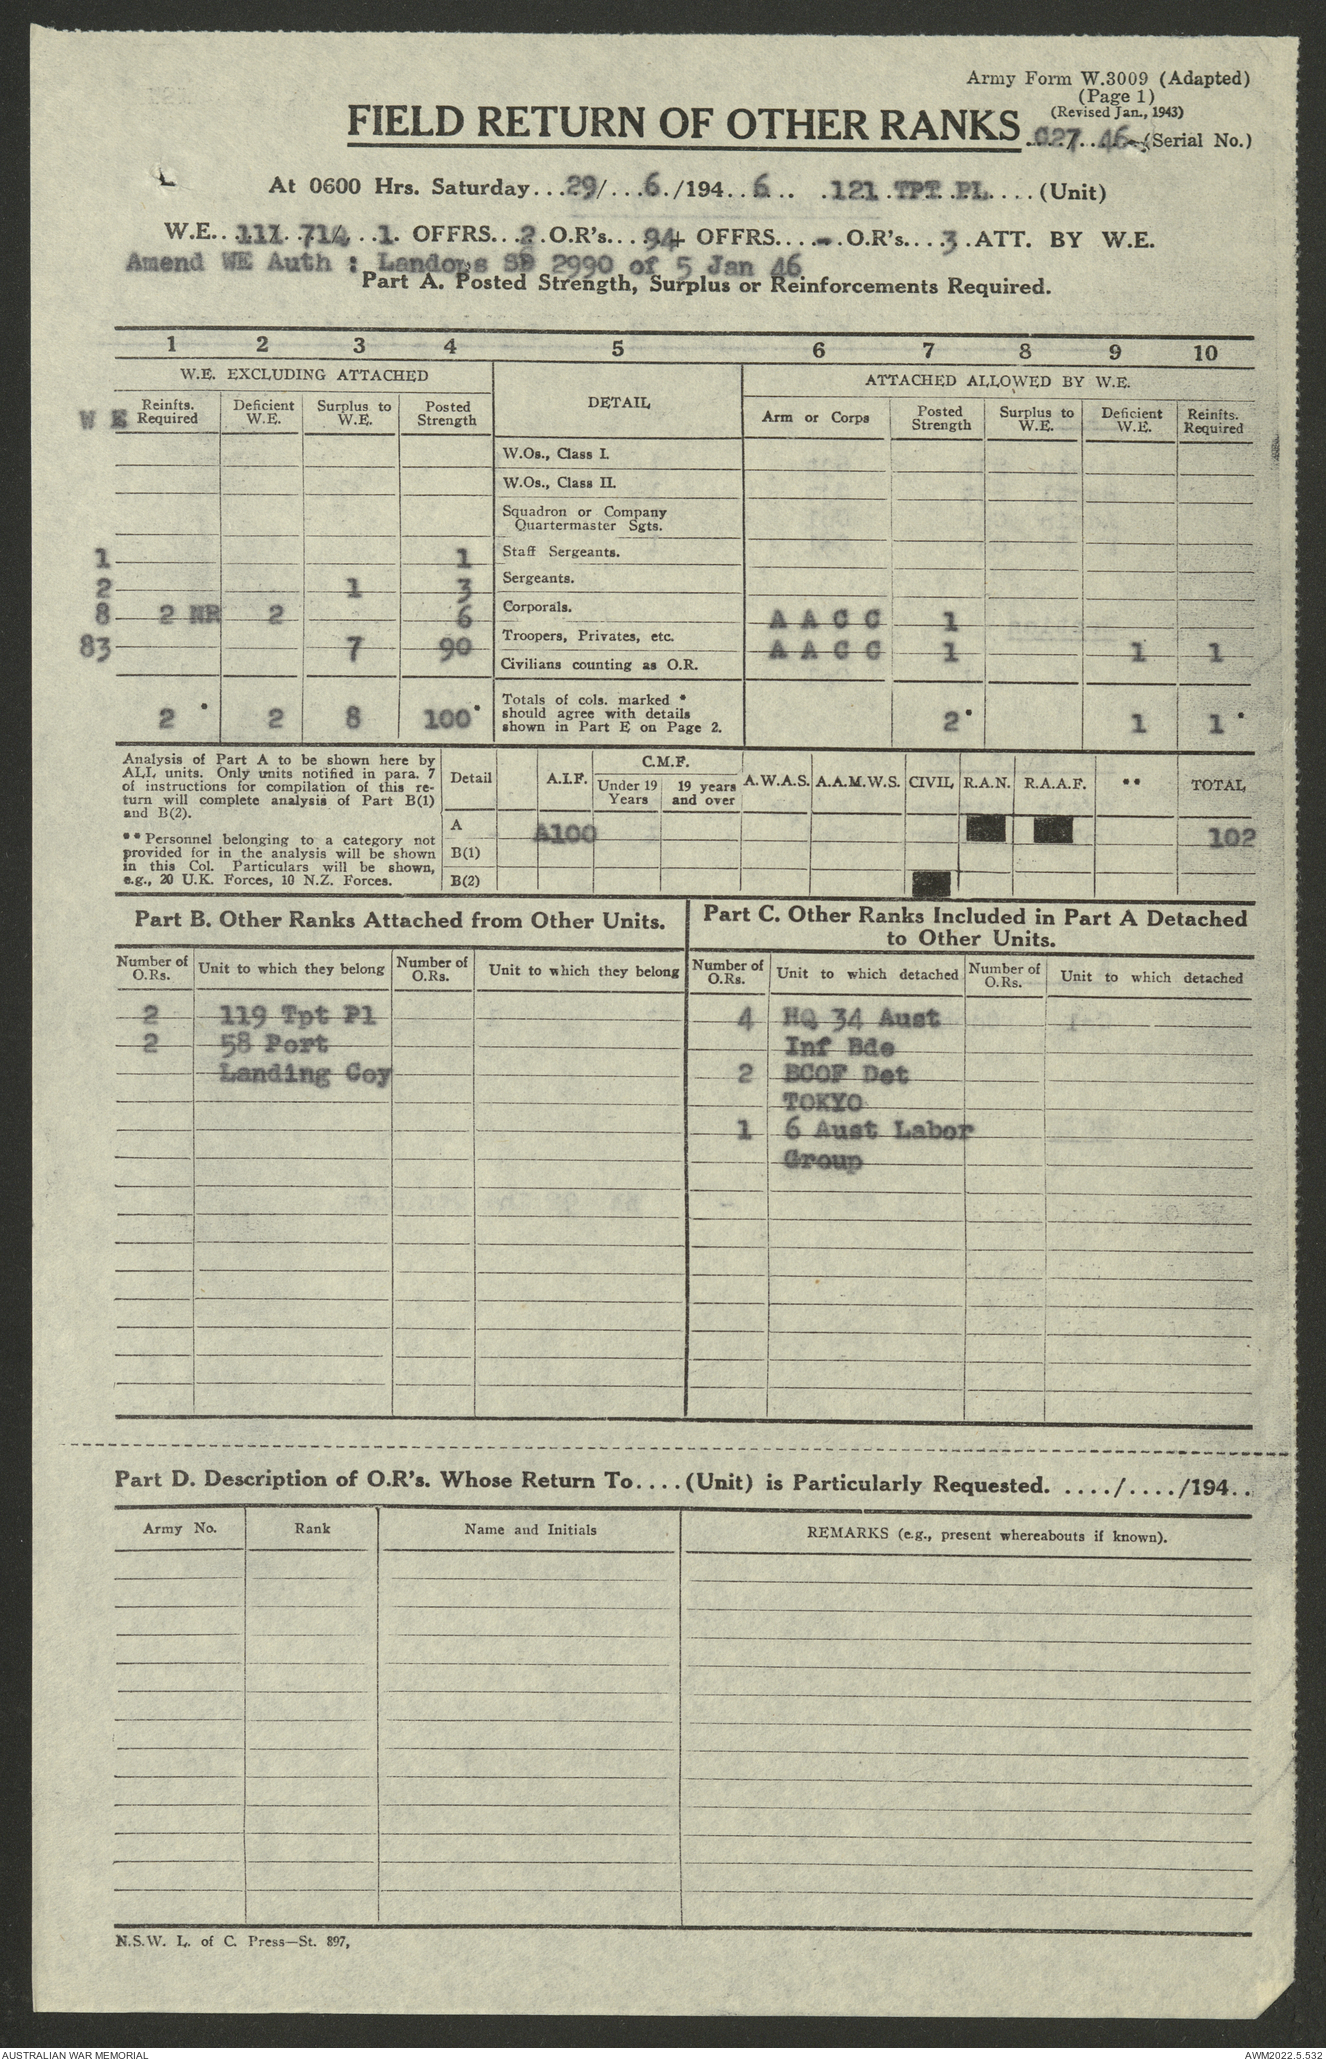 Army Form W.3009 (Adapted)
(Page 1)
(Revised Jan., 1943)
FIELD RETURN OF OTHER RANKS
27 46 (Serial No.)
At 0600 Hrs. Saturday...29/...6./194..6.. .121 TPT PL....(Unit)
W.E.. 111 714 .1. OFFRS...2.O.R's...94+ OFFRS....-.O.R's....3.ATT. BY W.E.
Amend WE Auth : Landops SD 2990 of 5 Jan 46
Part A. Posted Strength, Surplus or Reinforcements Required.
1 2 3 4 5 6 7 8 9 10
W.E. EXCLUDING ATTACHED DETAIL ATTACHED ALLOWED BY W.E.
W E Reinfts. Required Deficient W.E. Surplus to W.E. Posted Strength Arm or Corps Posted Strength Surplus to W.E. Deficient W.E. Reinfts. Required
W.Os., Class I.
W.Os., Class II.
Squadron or Company
Quartermaster Sgts.
1 1 Staff Sergeants.
2 1 3 Sergeants.
8 2 NR 2 6 Corporals. A A C C 1
83 7 90 Troopers, Privates, etc. A A C C 1 1 1
Civilians counting as O.R.
Totals of cols. marked *
should agree with details
shown in Part E on Page 2.
2 * 2 8 100* 2* 1 1 *
Analysis of Part A to be shown here by
ALL units. Only units notified in para. 7
of instructions for compilation of this re-
turn will complete analysis of Part B(1)
and B(2).
** Personnel belonging to a category not
provided for in the analysis will be shown
in this Col. Particulars will be shown,
e.g., 20 U.K. Forces, 10 N.Z. Forces.
Detail A.I.F. C.M.F. Under 19 Years 19 years and over A.W.A.S. A.A.M.W.S. CIVIL R.A.N. R.A.A.F. ** TOTAL
A A100 102
B(1)
B(2)
Part B. Other Ranks Attached from Other Units.
Number of O.Rs. Unit to which they belong Number of O.Rs. Unit to which they belong
2 119 Tpt Pl
2 58 Port
Landing Coy
Part C. Other Ranks Included in Part A Detached
to Other Units.
Number of O.Rs. Unit to which detached Number of O.Rs. Unit to which detached
4 HQ 34 Aust
Inf Bde
2 BCOF Det
TOKYO
1 6 Aust Labor
Group
Part D. Description of O.R's. Whose Return To....(Unit) is Particularly Requested. ..../..../194..
Army No. Rank Name and Initials REMARKS (e.g., present whereabouts if known).
N.S.W. L. of C. Press—St. 897,
AUSTRALIAN WAR MEMORIAL
AWM2022.5.532